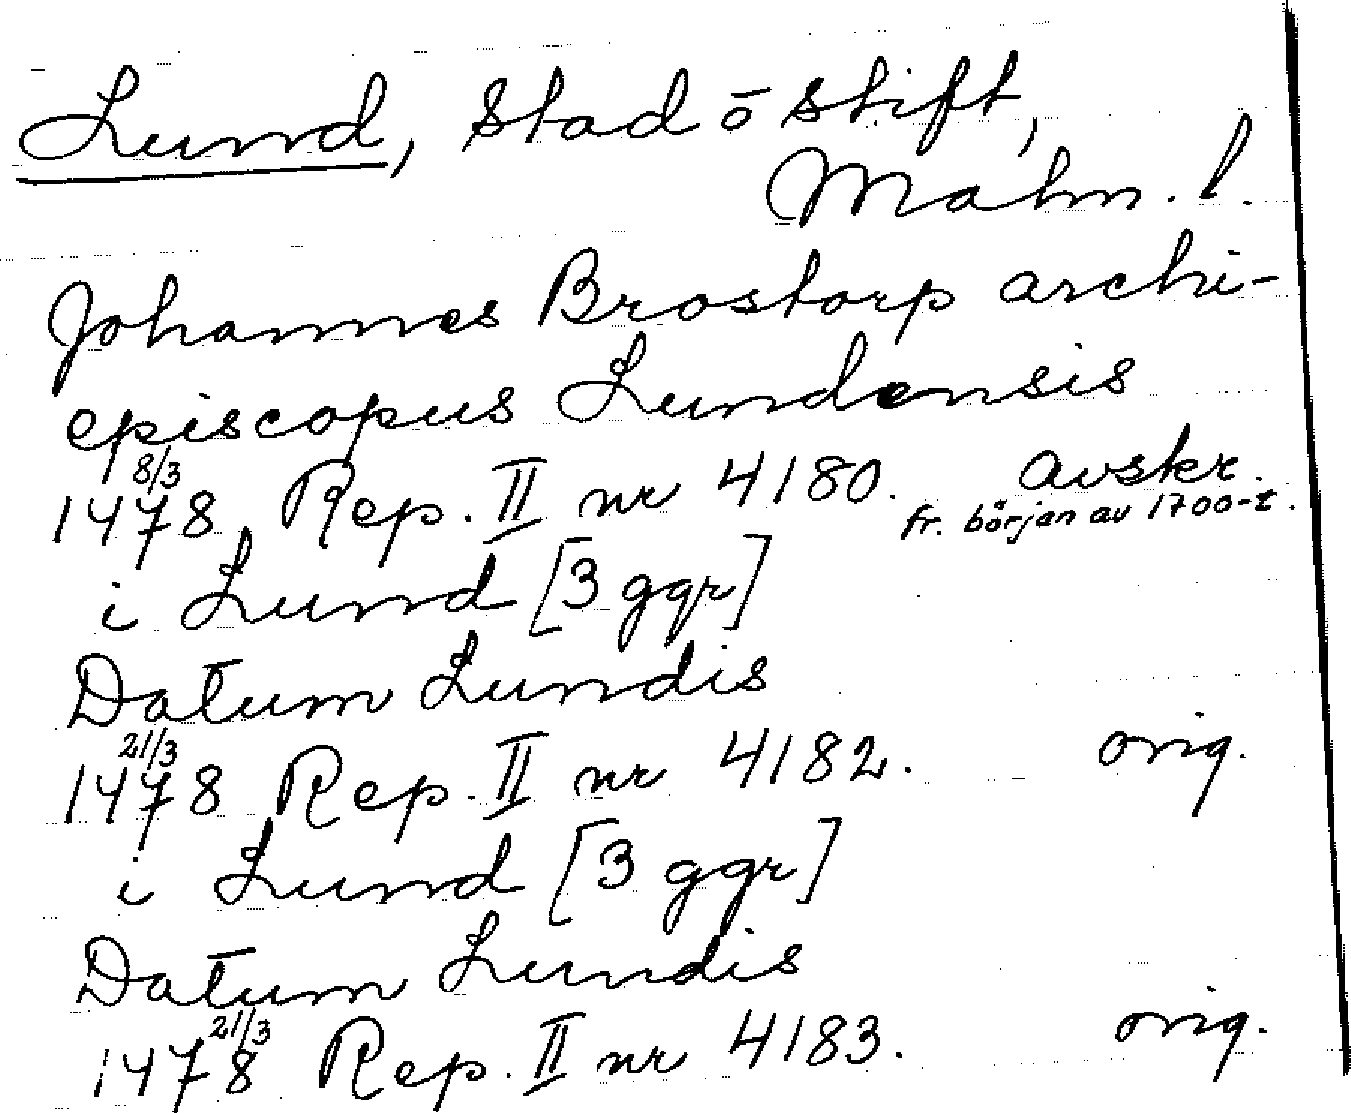 Lund, Stad ō stift,
Malm. l.
Johannes Brostorp archi-
episcopus Lundensis
8/3
1478 Rep. II nr 4180. avskr.
fr. början av 1700-t.
i Lund [3 ggr]
Datum Lundis
21/3
1478 Rep. II nr 4182. orig.
i Lund [3 ggr]
Datum Lundis
21/3
1478 Rep. II nr 4183. orig.